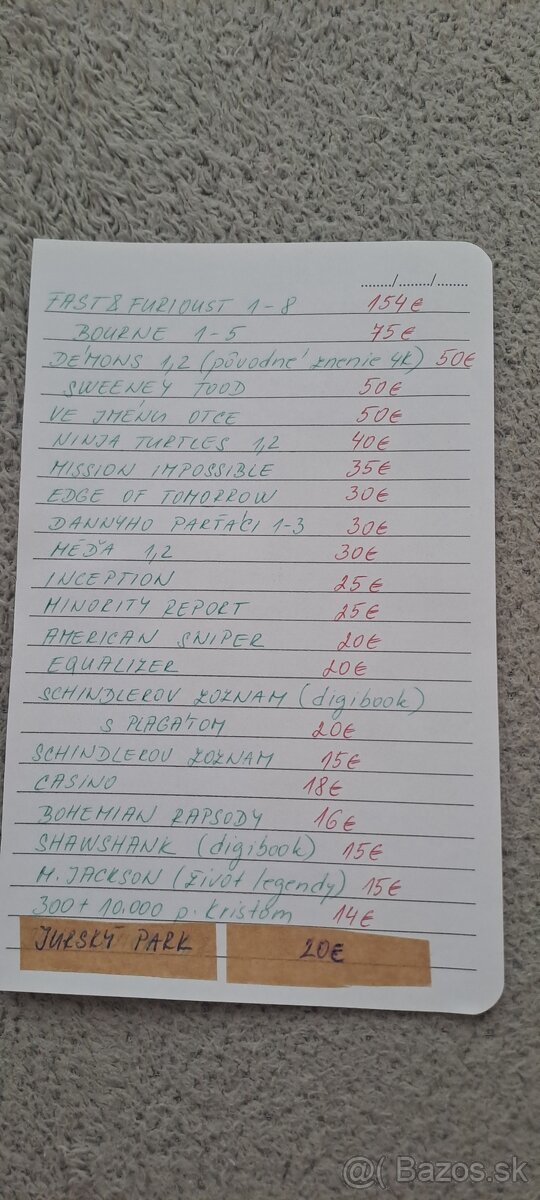 ......../......../........
FAST & FURIOUST 1-8 154€
BOURNE 1-5 75€
DÉMONS 1,2 (pôvodné znenie 4K) 50€
SWEENEY TODD 50€
VE JMÉNU OTCE 50€
NINJA TURTLES 1,2 40€
MISSION IMPOSSIBLE 35€
EDGE OF TOMORROW 30€
DANNYHO PARŤÁCI 1-3 30€
MÉĎA 1,2 30€
INCEPTION 25€
MINORITY REPORT 25€
AMERICAN SNIPER 20€
EQUALIZER 20€
SCHINDLEROV ZOZNAM (digibook)
S PLAGÁTOM 20€
SCHINDLEROV ZOZNAM 15€
CASINO 18€
BOHEMIAN RAPSODY 16€
SHAWSHANK (digibook) 15€
M. JACKSON (život legendy) 15€
300 + 10.000 p. Kristom 14€
JURSKÝ PARK 20€
@( Bazos.sk